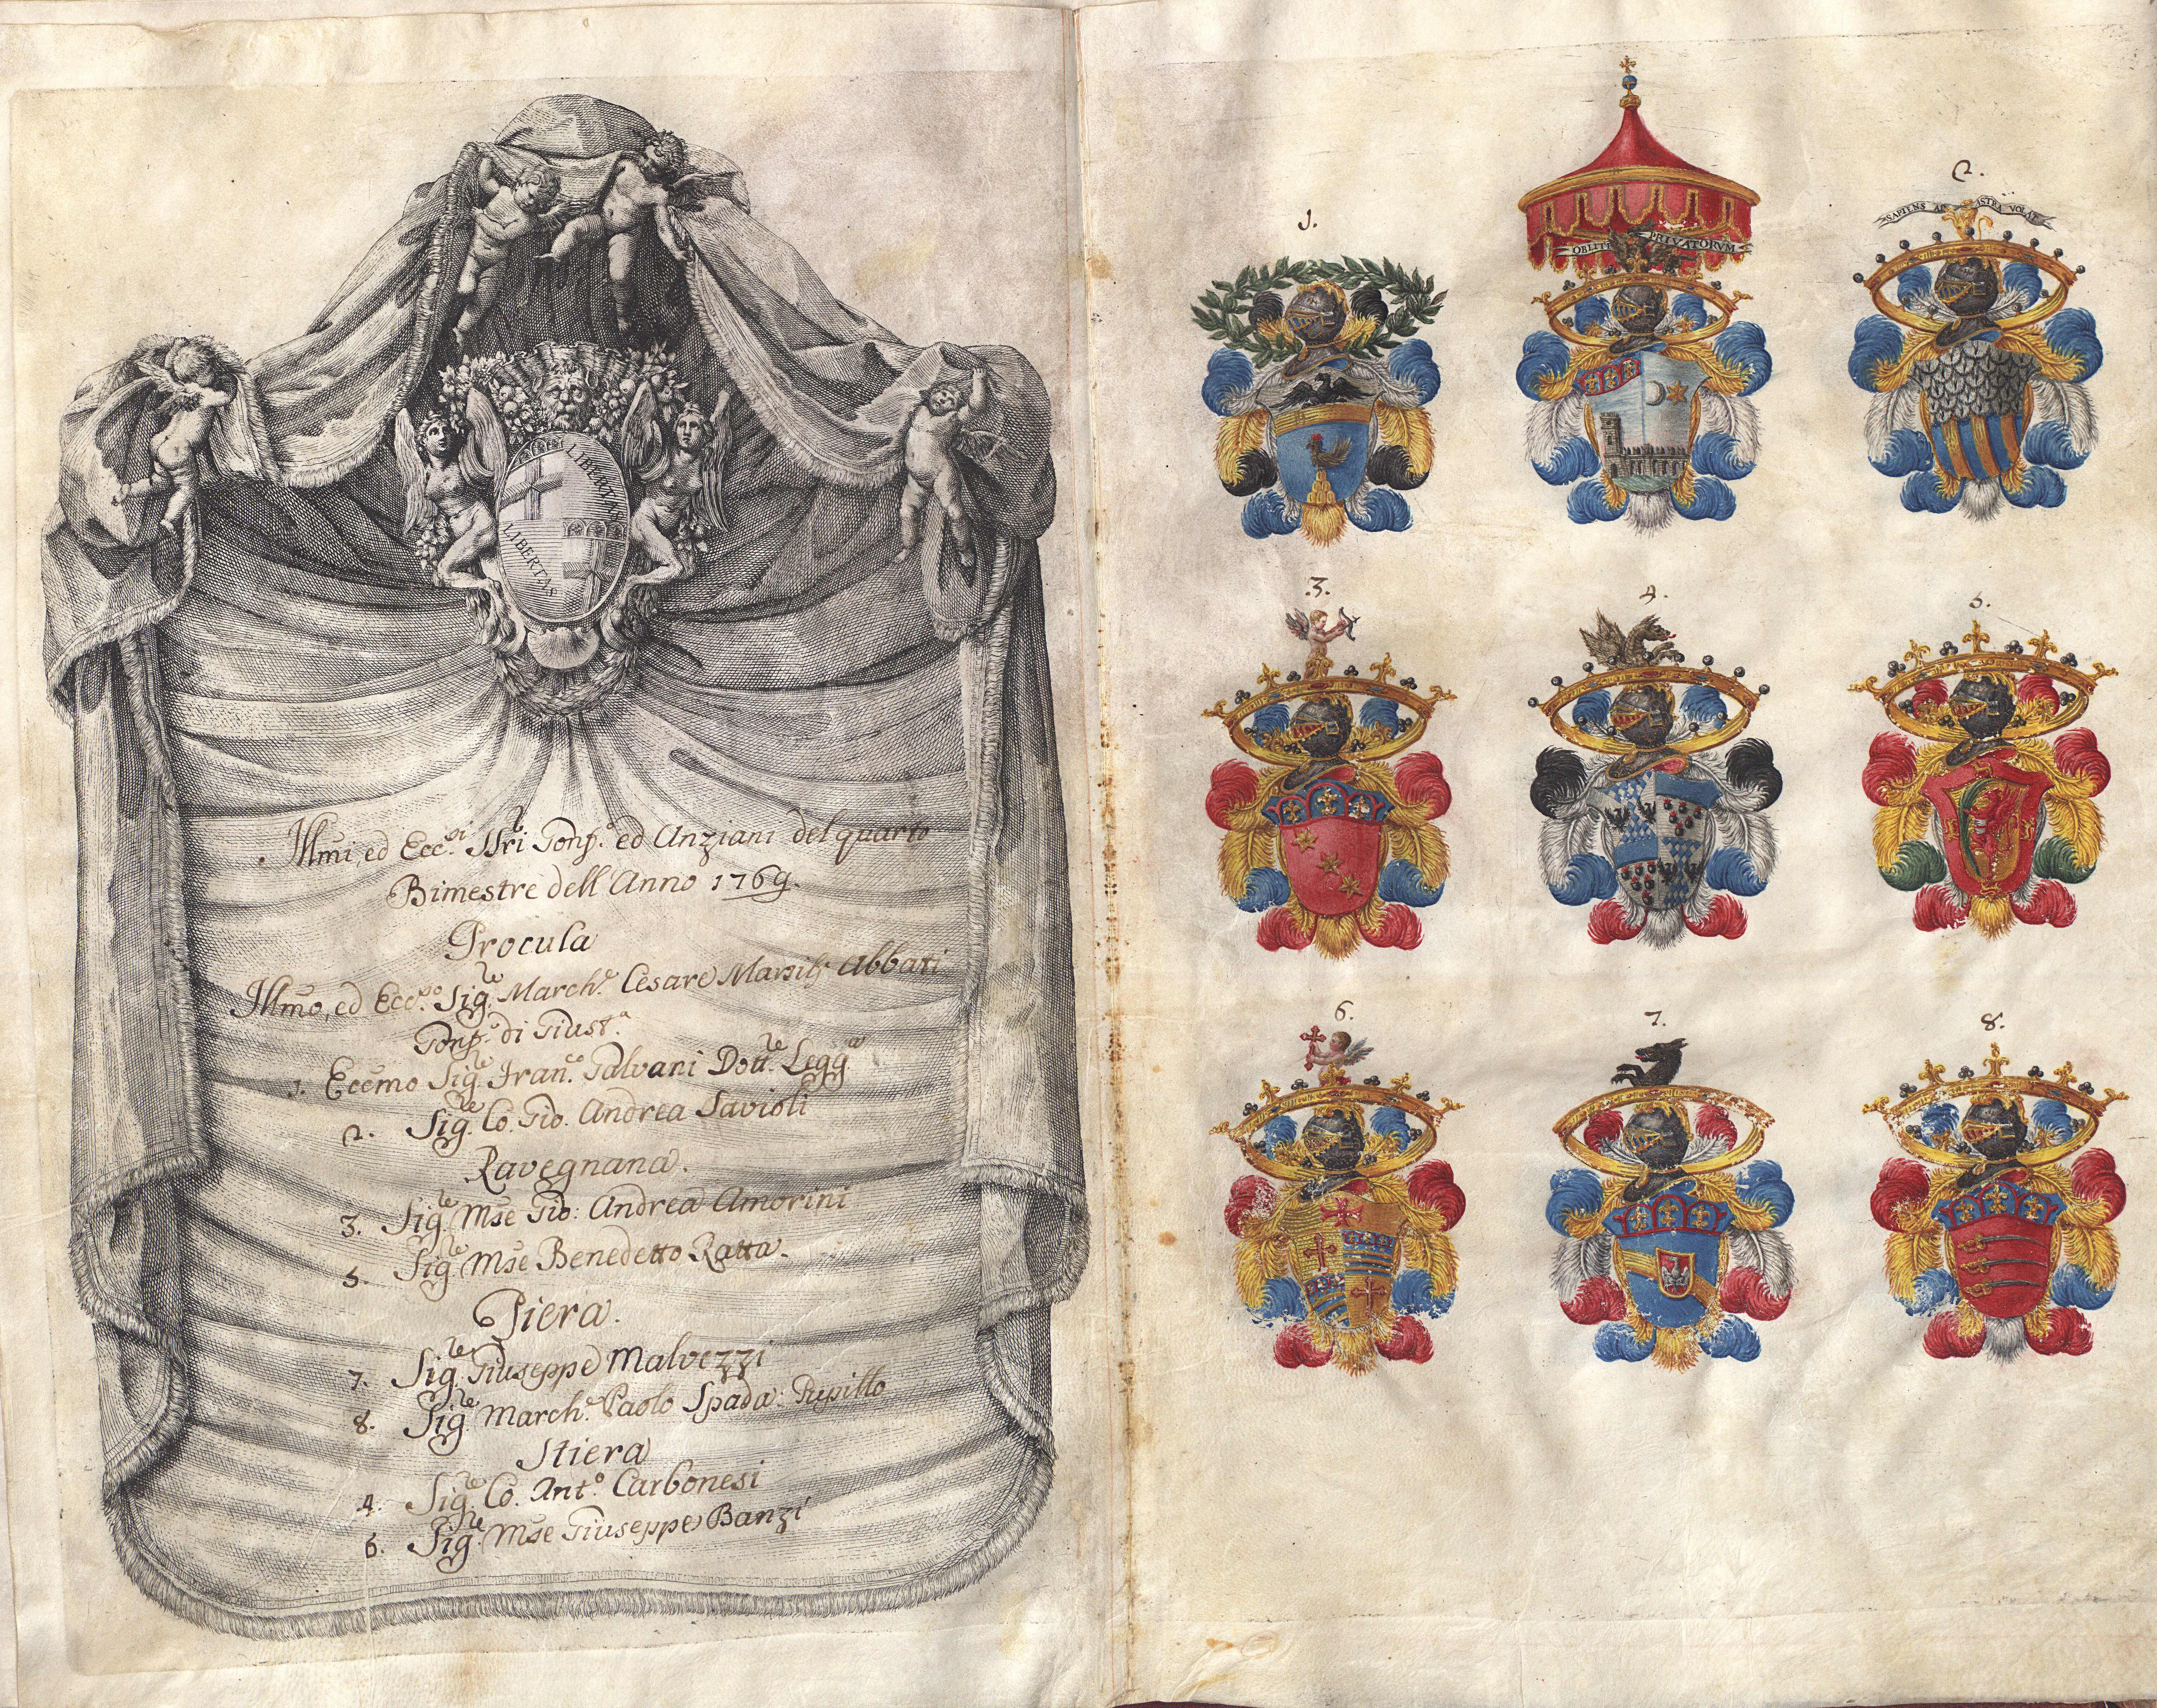 LIBERTAS
LIBERTAS
Illmi, ed Ecc.si SSri Gonf.e ed Anziani del quarto
Bimestre dell' Anno 1769.
Procula
Illmo, ed Ecc.mo Sig.re March.e Cesare Marsilj Abbati
Gonf.e di Giust.a
1. Eccmo Sig.re Fran.co Galvani Dott.re Legg.a
2. Sig.re Co. Gio. Andrea Savioli
Ravegnana.
3. Sig.re Mse Gio: Andrea Amorini
5. Sig.re Mse Benedetto Ratta.
Piera.
7. Sig.re Giuseppe Malvezzi
8. Sig.re March.e Paolo Spada: Pupillo
Stiera
4. Sig.re Co. Ant.o Carbonesi
6. Sig.re Mse Giuseppe Banzi
1.
OBLITI PRIVATORVM
2.
SAPIENS AD ASTRA VOLAT
3.
4.
5.
6.
7.
8.